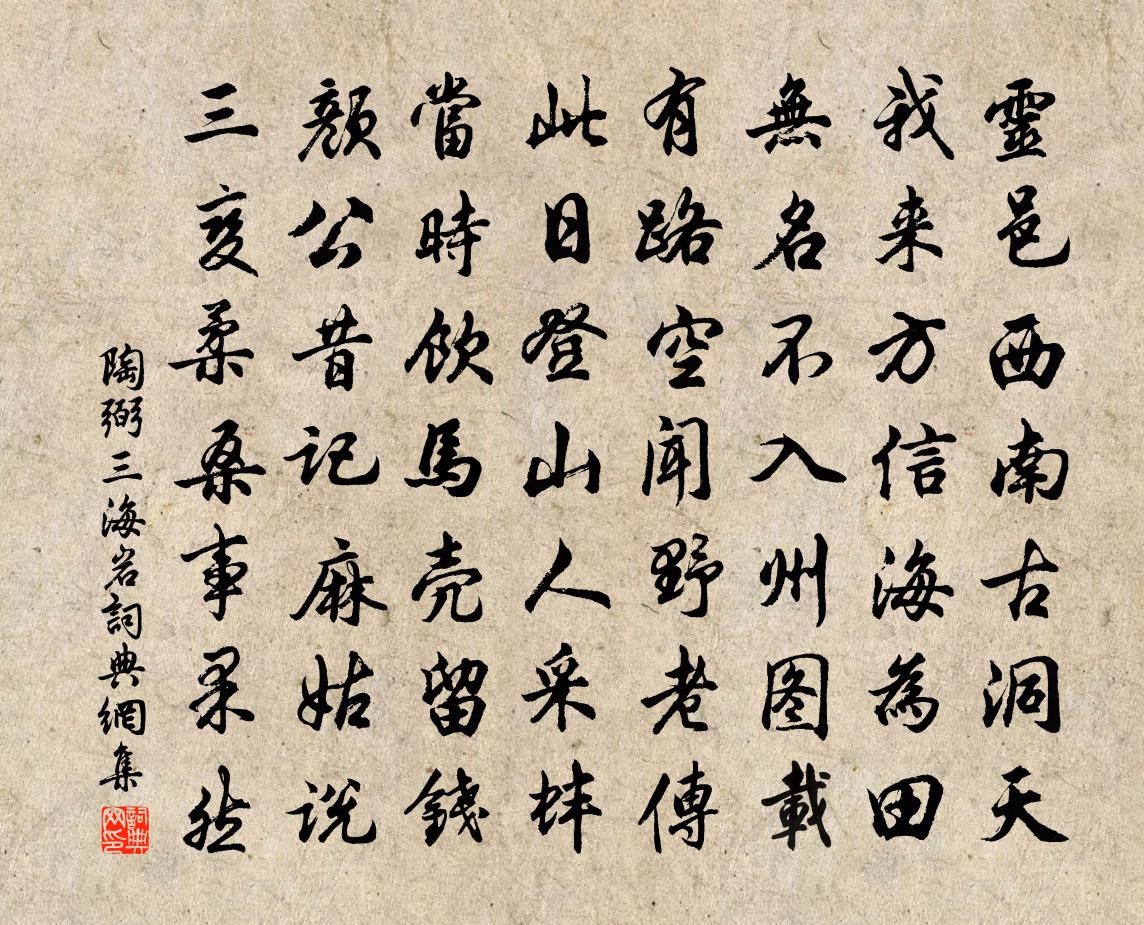 靈邑西南古洞天
我来方信海為田
無名不入州图載
有路空闻野老傳
此日登山人采蚌
當時飲馬壳留錢
顏公昔記麻姑説
三变柔桑事果然
陶弼三海岩詞典網集
詞典網印